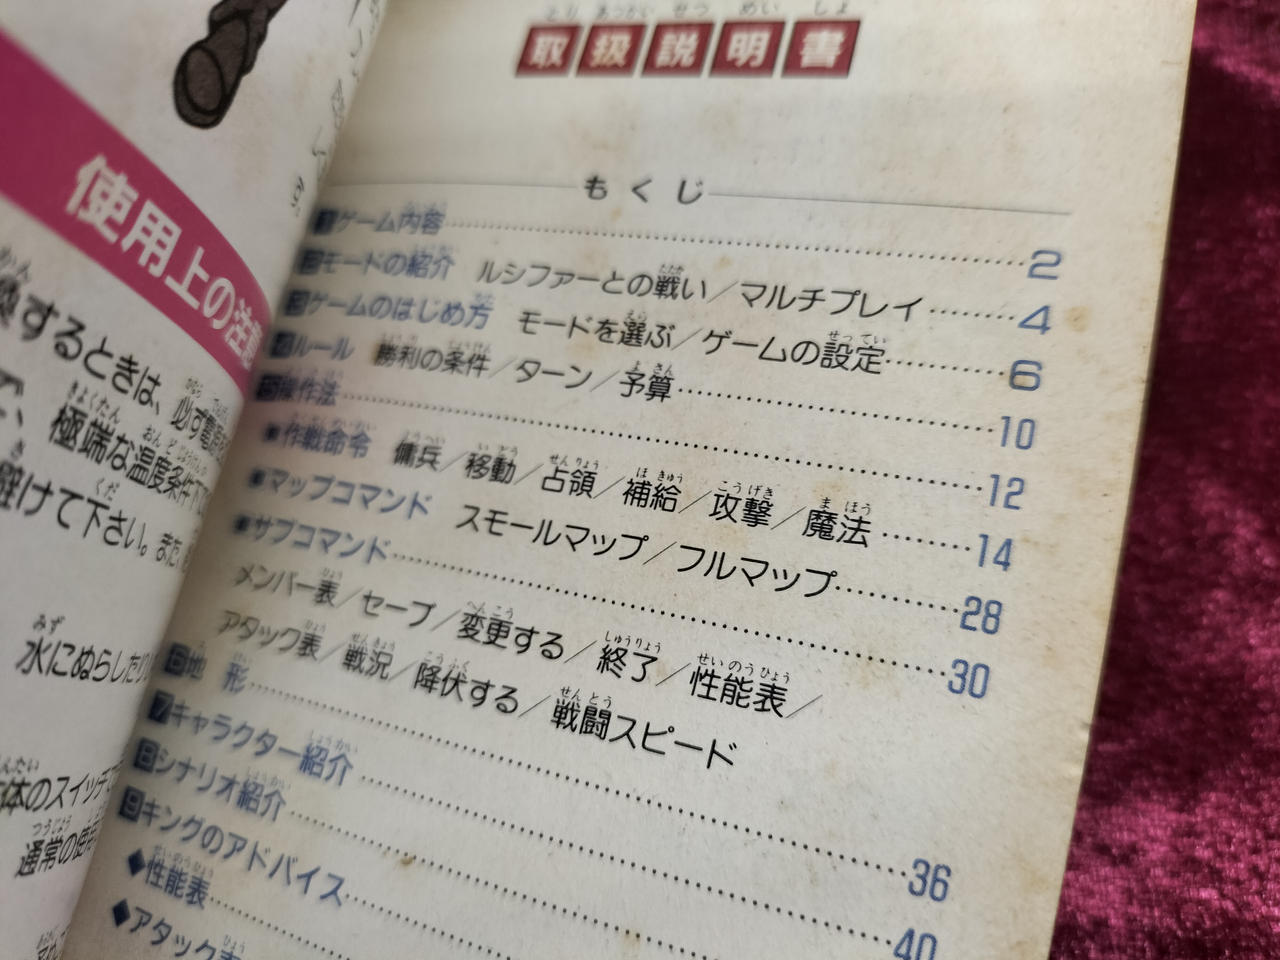 使用上の注意
換するときは、必ず電源を
極端な温度条件下で
避けて下さい。また
水にぬらしたり
体のスイッチで
通常の使用
取扱説明書
もくじ
1 ゲーム内容 2
2 モードの紹介 ルシファーとの戦い／マルチプレイ 4
3 ゲームのはじめ方 モードを選ぶ／ゲームの設定 6
4 ルール 勝利の条件／ターン／予算 10
5 操作法 12
■作戦命令 傭兵／移動／占領／補給／攻撃／魔法 14
■マップコマンド スモールマップ／フルマップ 28
■サブコマンド 30
メンバー表／セーブ／変更する／終了／性能表／
アタック表／戦況／降伏する／戦闘スピード
6 地形 36
7 キャラクター紹介 40
8 シナリオ紹介
9 キングのアドバイス
◆性能表
◆アタック表